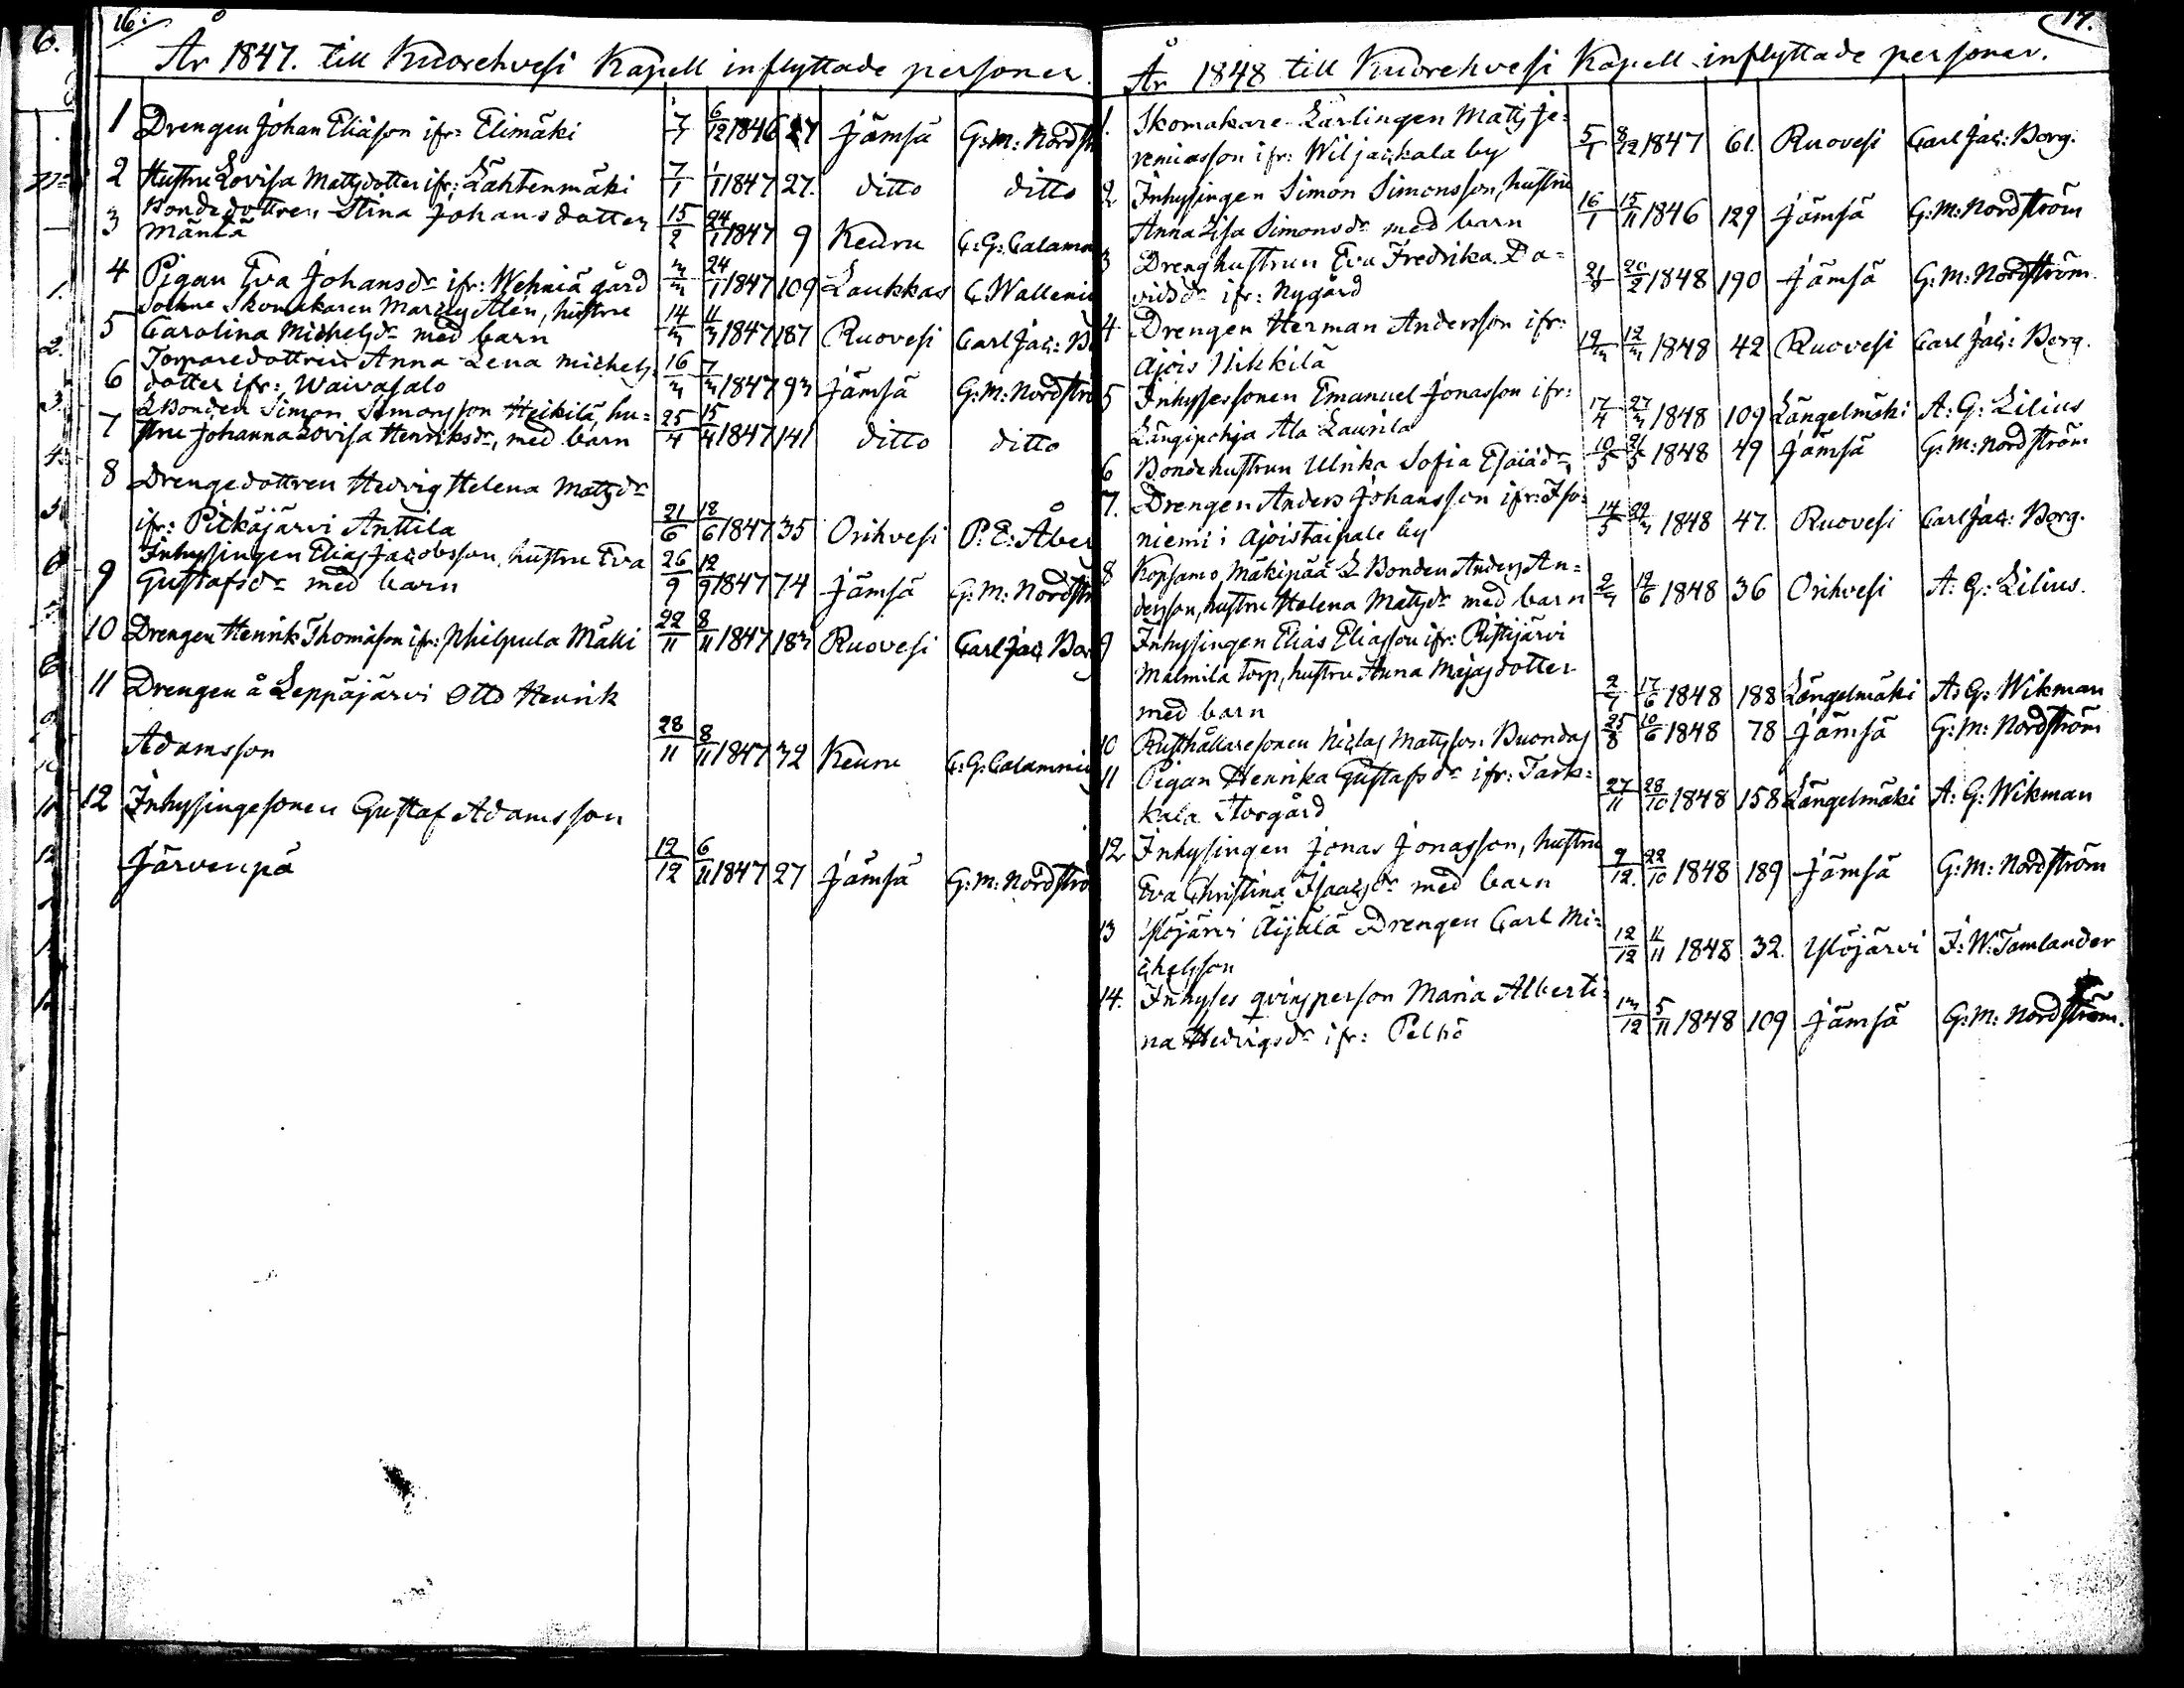 16:
År 1847. till Kuorehvesi Kapell inflyttade personer.
1 Drengen Johan Eliasson ifr: Elimäki 7/1 6/12 1846 27 Jämsä G: M: Nordst
2 Hustru Lovisa Mattsdotter ifr: Lähtenmäki 7/1 1/1 1847 27. ditto ditto
Bondedottren Stina Johansdotter
3 Mänttä 15/2 24/1 1847 9 Keuru C: G: Calamn
4 Pigan Eva Johansdr ifr: Wehniä gård 3/3 24/1 1847 109 Laukkas C Walleniu
Sockne Skomakaren Alén, hustru
5 Carolina Michelsdr med barn 14/3 11/3 1847 187 Ruovesi Carl Jac: B
Torparedottren Anna Lena Michels
6 dotter ifr: Waivasalo 16/3 7/3 1847 93 Jämsä G: M: Nordströ
L Bonden Simon Simonsson Heikilä, hu=
7 stru Johanna Lovisa Henriksdr, med barn 25/4 15/4 1847 141 ditto ditto
8 Drengedottren Hedvig Helena Mattsdr
ifr: Pitkäjärvi Anttila 21/6 18/6 1847 35 Orihvesi P. E: Åber
Inhysingen Elias Jacobsson, hustru Eva
9 Gustafsdr med barn 26/9 12/9 1847 74 Jämsä G: M: Nordströ
10 Drengen Henrik Thomasson ifr: Philpula Mäki 22/11 8/11 1847 183 Ruovesi Carl Jac Bor
11 Drengen å Leppäjärvi Otto Henrik
Adamsson 28/11 8/11 1847 32 Keuru C: G: Calamniu
12 Inhysingesonen Gustaf Adamsson
Järvenpä 12/12 6/11 1847 27 Jämsä G: M: Nordströ
17.
År 1848 till Kuorehvesi Kapell inflyttade personer.
1. Skomakare Lärlingen Matts Je=
remiasson ifr: Wiljackala by 5/1 8/12 1847 61. Ruovesi Carl Jac: Borg.
2 Inhysingen Simon Simonsson, hustru
Anna Lisa Simonsdr med barn 16/1 15/11 1846 129 Jämsä G: M: Nordström
3 Drenghustrun Eva Fredrika Da=
vidsdr ifr: Nygård 21/3 20/2 1848 190 Jämsä G: M: Nordström.
4 Drengen Herman Andersson ifr:
Ajois Nikkilä 19/3 12/3 1848 42 Ruovesi Carl Jac: Borg.
5 Inhyssessonen Emanuel Jonasson ifr:
Längipohja Ala Laurila 17/4 27/3 1848 109 Längelmäki A: G: Lilius
6 Bondehustrun Ulrika Sofia Esaiadr 10/5 21/3 1848 49 Jämsä G: M: Nordström
7. Drengen Anders Johansson ifr: Iso=
niemi i Ajoistaipale by 14/5 22/3 1848 47. Ruovesi Carl Jac: Borg.
8 Kopsamo, Mäkipää L Bonden Anders An=
dersson, hustru Helena Mattsdr med barn 2/7 12/6 1848 36 Orihvesi A: G: Lilius.
9 Inhysingen Elias Eliasson ifr: Ristijärvi
Malmila torp, hustru Anna Majasdotter
med barn 2/7 17/6 1848 188 Längelmäki A: G: Wikman
10 Rusthållaresonen Niclas Mattsson Buondas 25/8 10/6 1848 78 Jämsä G: M: Nordström
11 Pigan Henrika Gustafsdr ifr: Tark=
kala Storgård 27/11 28/10 1848 158 Längelmäki A: G: Wikman
12 Inhysingen Jonas Jonasson, hustru
Eva Christina Isaacsdr med barn 9/12. 22/10 1848 189 Jämsä G: M: Nordström
13 Ylöjärvi Äijälä Drengen Carl Mi=
chelsson 12/12 11/11 1848 32. Ylöjärvi F: W: Tamlander
14. Inhyses qvinsperson Maria Alberti=
na Hedvigsdr ifr: Peltö 13/12 5/11 1848 109 Jämsä G: M: Nordström.